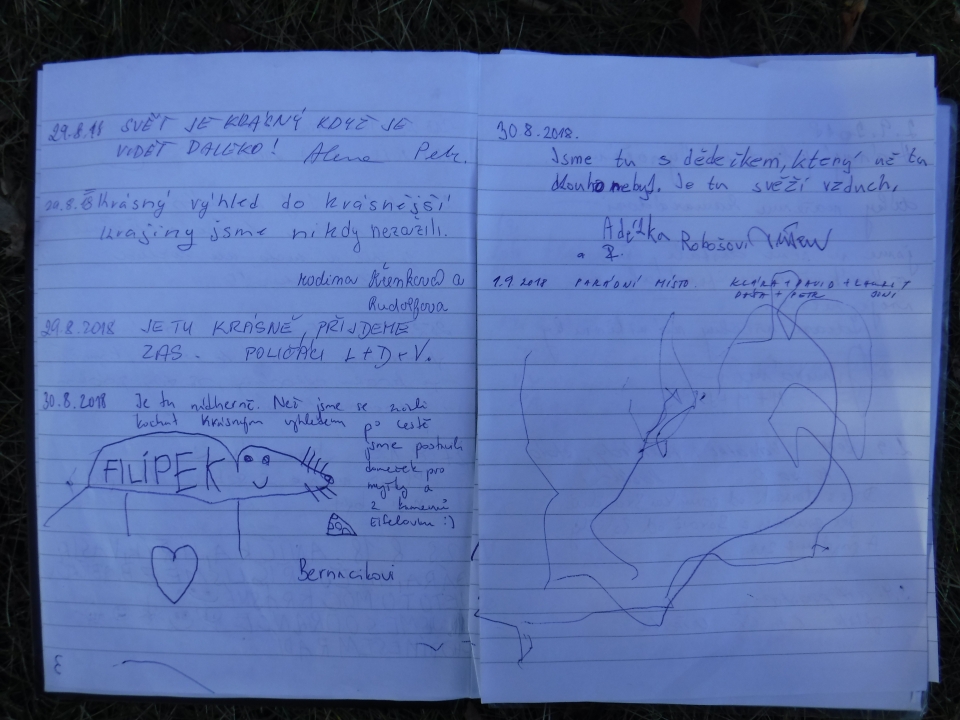 29.8.18 SVĚT JE KRÁSNÝ KDYŽ JE
VIDĚT DALEKO! Alena Petr.
29.8. Krásný výhled do krásnější
krajiny jsme nikdy nezažili.
rodina Křenkova a
Rudolfova
29.8.2018 JE TU KRÁSNĚ, PŘIJDEME
ZAS. POLIČÁCI L+D+V.
30.8.2018 Je tu nádherně. Než jsme se
kochat krásným výhledem po cestě
jsme postavili
domeček pro
myšky a
z kamenů
Eifelovku :)
FILÍPEK
Bernacikovi
30.8.2018.
Jsme tu s dědečkem, který už tu
dlouho nebyl. Je tu svěží vzduch.
Adélka Robošovi
1.9.2018 PARÁDNÍ MÍSTO KLÁRA + DAVID +
DÁŠA + PETR